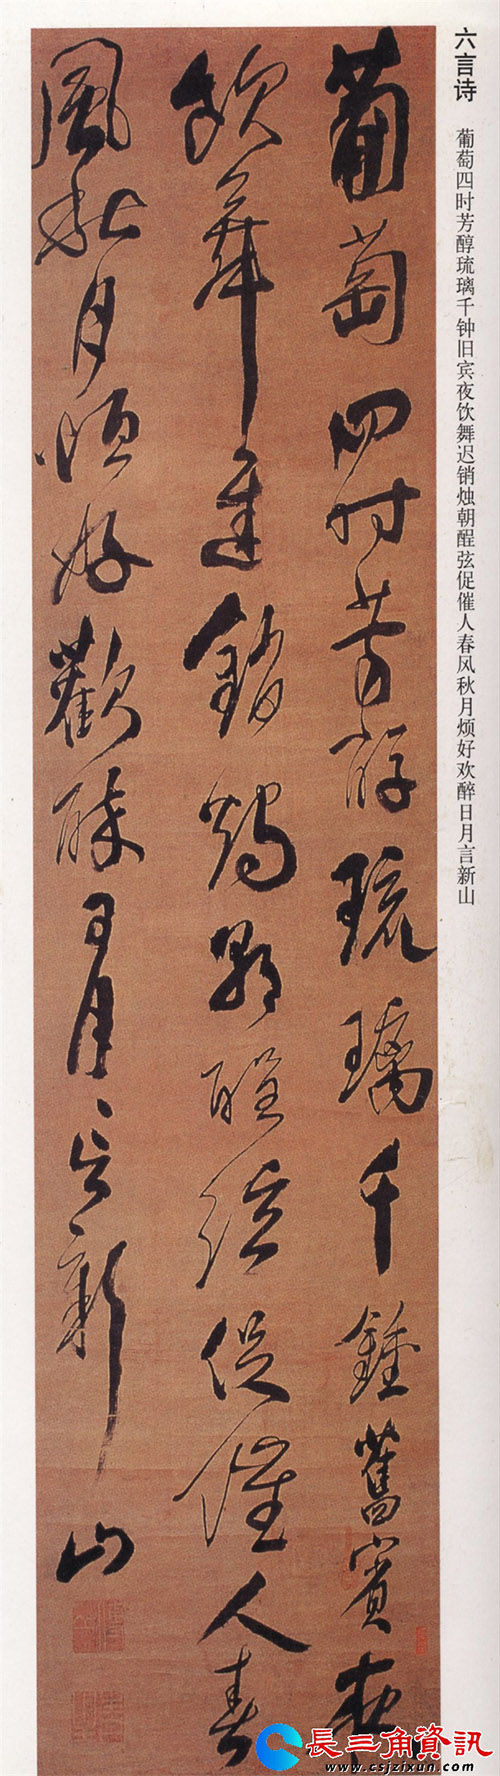 六言诗 葡萄四时芳醇琉璃千钟旧宾夜饮舞迟销烛朝酲弦促催人春风秋月烦好欢醉日月言新山
葡萄四时芳醇琉璃千鍾舊賓夜
飲舞遲銷燭朝酲弦促催人春
風秋月恒好歡醉日月言新山
長三角資訊
www.csjzixun.com